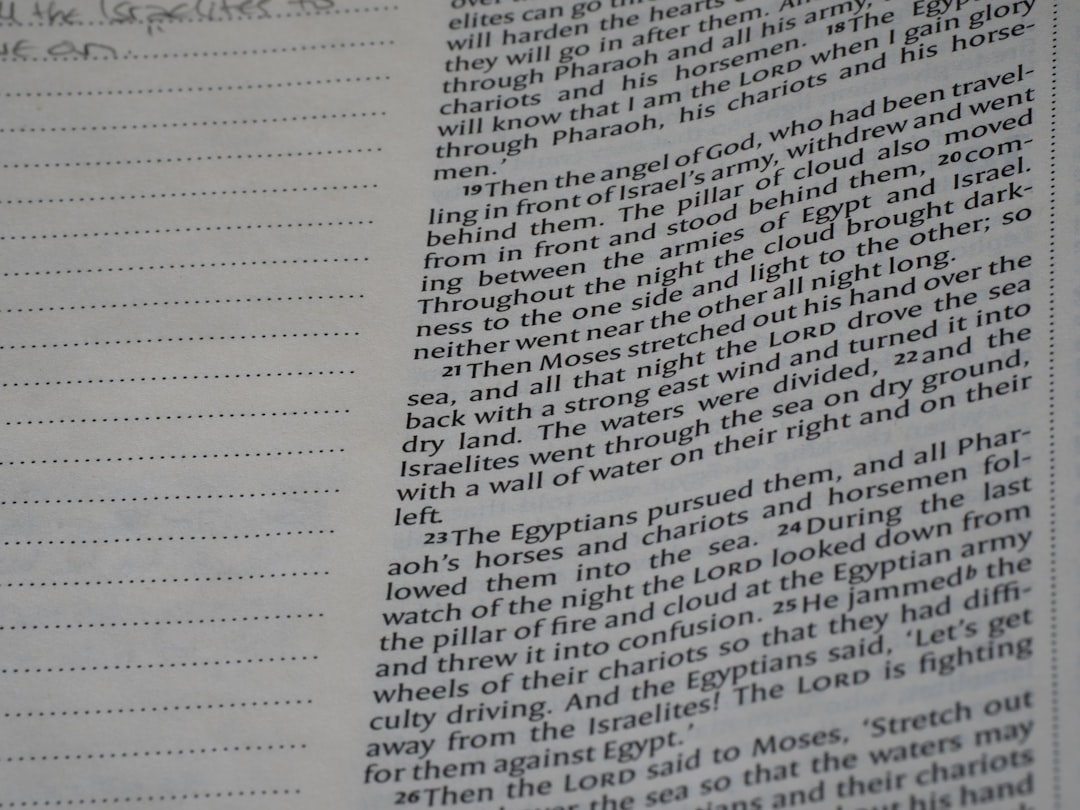 the Israelites to
over
elites can go
will harden the hearts
they will go in after them.
through Pharaoh and all his army,
chariots and his horsemen. 18The
will know that I am the LORD when I gain glory
through Pharaoh, his chariots and his horse-
men.’
19Then the angel of God, who had been travel-
ling in front of Israel’s army, withdrew and went
behind them. The pillar of cloud also moved
from in front and stood behind them, 20com-
ing between the armies of Egypt and Israel.
Throughout the night the cloud brought dark-
ness to the one side and light to the other; so
neither went near the other all night long.
21Then Moses stretched out his hand over the
sea, and all that night the LORD drove the sea
back with a strong east wind and turned it into
dry land. The waters were divided, 22and the
Israelites went through the sea on dry ground,
with a wall of water on their right and on their
left.
23The Egyptians pursued them, and all Phar-
aoh’s horses and chariots and horsemen fol-
lowed them into the sea. 24During the last
watch of the night the LORD looked down from
the pillar of fire and cloud at the Egyptian army
and threw it into confusion. 25He jammedb the
wheels of their chariots so that they had diffi-
culty driving. And the Egyptians said, ‘Let’s get
away from the Israelites! The LORD is fighting
for them against Egypt.’
26Then the LORD said to Moses, ‘Stretch out
over the sea so that the waters may
and their chariots
his hand